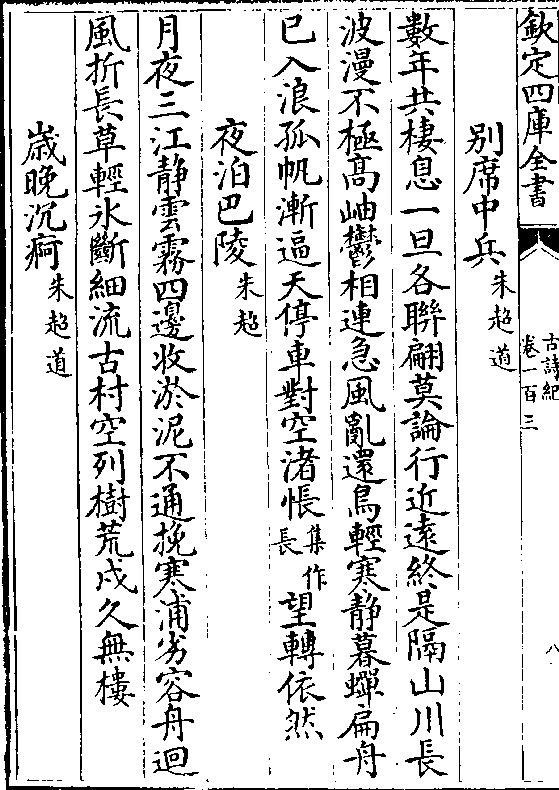 欽定四庫全書
古詩紀
卷一百三
八
別席中兵朱超道
數年共棲息一旦各聯翩莫論行近遠終是隔山川長
波漫不極高岫鬱相連急風亂還鳥輕寒静暮蟬扁舟
已入浪孤帆漸逼天停車對空渚悵集作長望轉依然
夜泊巴陵朱超
月夜三江静雲霧四邊收淤泥不通挽寒浦劣容舟迴
風折長草輕氷斷細流古村空列樹荒戍久無樓
歳晚沉痾朱超道